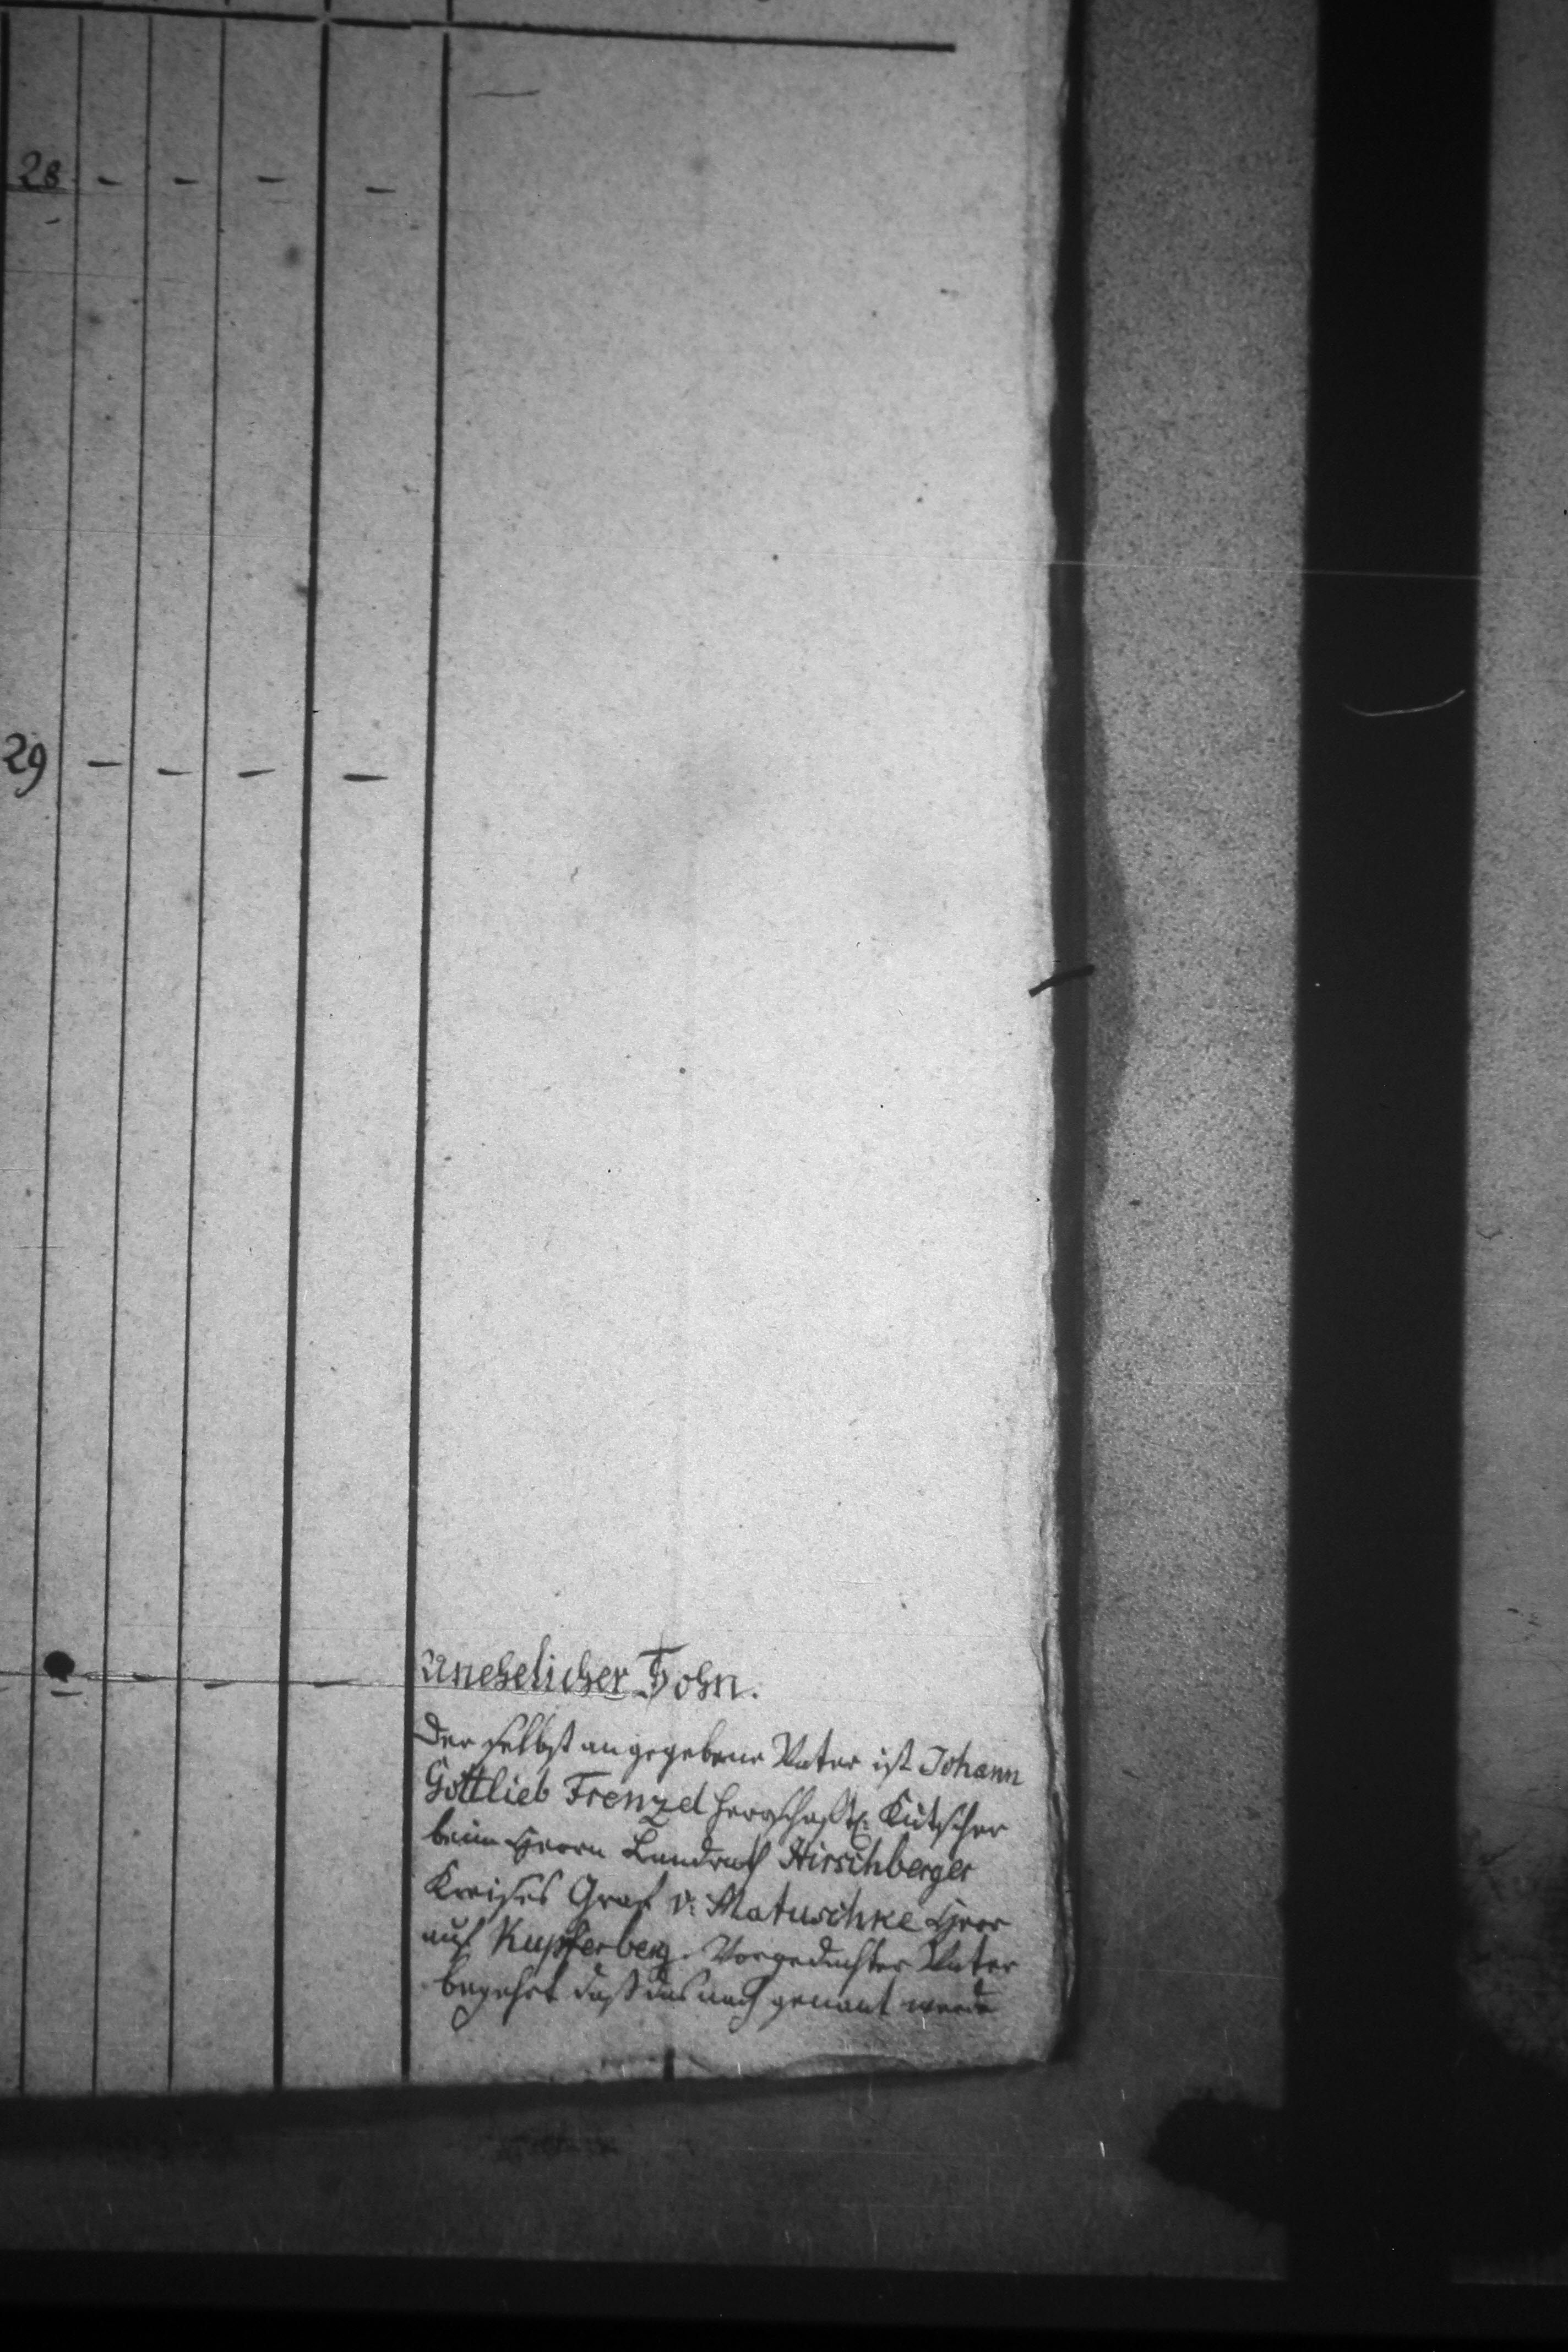 28 - - - -
29 - - - -
Unehelicher Sohn.
Der selbst angegebene Vater ist Johann
Gottlieb Frenzel herrschaftl: Kutscher
beim Herrn Landrath Hirschberger
Kreises Graf v: Matuschke Herr
auf Kupferberg. Vorgedachter Vater
begehrt daß das nach genant werde